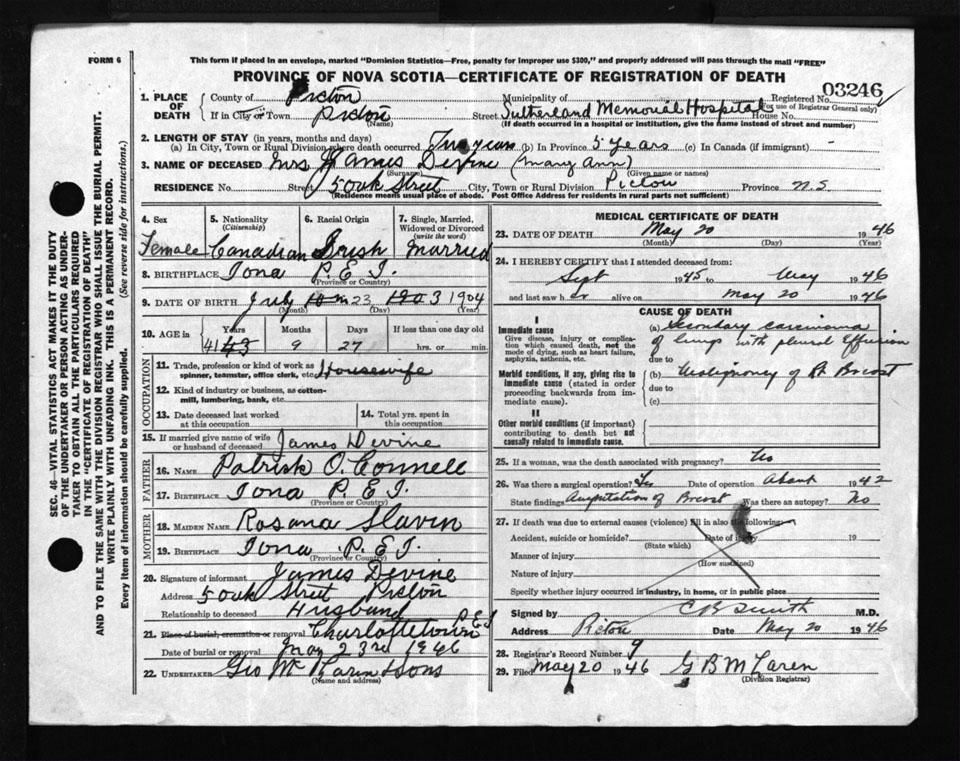 FORM 6
This form if placed in an envelope, marked "Dominion Statistics—Free, penalty for improper use $300," and properly addressed will pass through the mail "FREE"
PROVINCE OF NOVA SCOTIA—CERTIFICATE OF REGISTRATION OF DEATH
03246
1. PLACE OF DEATH { County of Pictou Municipality of Registered No. (For use of Registrar General only)
If in City or Town Pictou (Name) Street Sutherland Memorial Hospital House No.
(If death occurred in a hospital or institution, give the name instead of street and number)
2. LENGTH OF STAY (in years, months and days)
(a) In City, Town or Rural Division where death occurred (b) In Province 5 years (c) In Canada (if immigrant) -
3. NAME OF DECEASED Mrs James Devine (Mary Ann)
(Surname) (Given name or names)
RESIDENCE No. Street City, Town or Rural Division Pictou Province N.S.
(Residence means usual place of abode. Post Office Address for residents in rural parts not sufficient)
4. Sex Female
5. Nationality (Citizenship) Canadian
6. Racial Origin Irish
7. Single, Married, Widowed or Divorced (write the word) Married
8. BIRTHPLACE Iona P.E.I.
(Province or Country)
9. DATE OF BIRTH July 23 1903 1904
(Month) (Day) (Year)
10. AGE in { Years Months Days If less than one day old
41 43 9 27 hrs. or min.
OCCUPATION
11. Trade, profession or kind of work as spinner, teamster, office clerk, etc. Housewife
12. Kind of industry or business, as cotton-mill, lumbering, bank, etc.
13. Date deceased last worked at this occupation
14. Total yrs. spent in this occupation
15. If married give name of wife or husband of deceased James Devine
FATHER
16. NAME Patrick O. Connell
17. BIRTHPLACE Iona P.E.I.
(Province or Country)
MOTHER
18. MAIDEN NAME Rosana Slavin
19. BIRTHPLACE Iona P.E.I.
(Province or Country)
20. Signature of informant James Devine
Address Street Pictou
Relationship to deceased Husband
21. Place of burial, cremation or removal Charlottetown P.E.I
Date of burial or removal May 23rd 1946
22. UNDERTAKER Geo McLaren & Sons
(Name and address)
MEDICAL CERTIFICATE OF DEATH
23. DATE OF DEATH May 20 1946
(Month) (Day) (Year)
24. I HEREBY CERTIFY that I attended deceased from:
Sept 1945 to May 1946
and last saw h er alive on May 20 1946
CAUSE OF DEATH
I
Immediate cause
Give disease, injury or complication which caused death, not the mode of dying, such as heart failure, asphyxia, asthenia, etc.
(a) Secondary carcinoma
of lungs with pleural effusion
due to
Morbid conditions, if any, giving rise to immediate cause (stated in order proceeding backwards from immediate cause).
(b) Malignancy of Rt Breast
due to
(c)
II
Other morbid conditions (if important) contributing to death but not causally related to immediate cause.
25. If a woman, was the death associated with pregnancy? No
26. Was there a surgical operation? Yes Date of operation About 1942
State findings Amputation of Breast Was there an autopsy? No
27. If death was due to external causes (violence) fill in also the following:
Accident, suicide or homicide? Date of injury 19
(State which)
Manner of injury
(How sustained)
Nature of injury
Specify whether injury occurred in industry, in home, or in public place
Signed by C B Smith M.D.
Address Pictou Date May 20 1946
28. Registrar's Record Number 9
29. Filed May 20 1946 G B McLaren
(Division Registrar)
SEC. 46—VITAL STATISTICS ACT MAKES IT THE DUTY
OF THE UNDERTAKER OR PERSON ACTING AS UNDER-
TAKER TO OBTAIN ALL THE PARTICULARS REQUIRED
IN THE "CERTIFICATE OF REGISTRATION OF DEATH"
AND TO FILE THE SAME WITH THE DIVISION REGISTRAR WHO SHALL ISSUE THE BURIAL PERMIT.
WRITE PLAINLY WITH UNFADING INK. THIS IS A PERMANENT RECORD.
Every item of information should be carefully supplied. (See reverse side for instructions.)